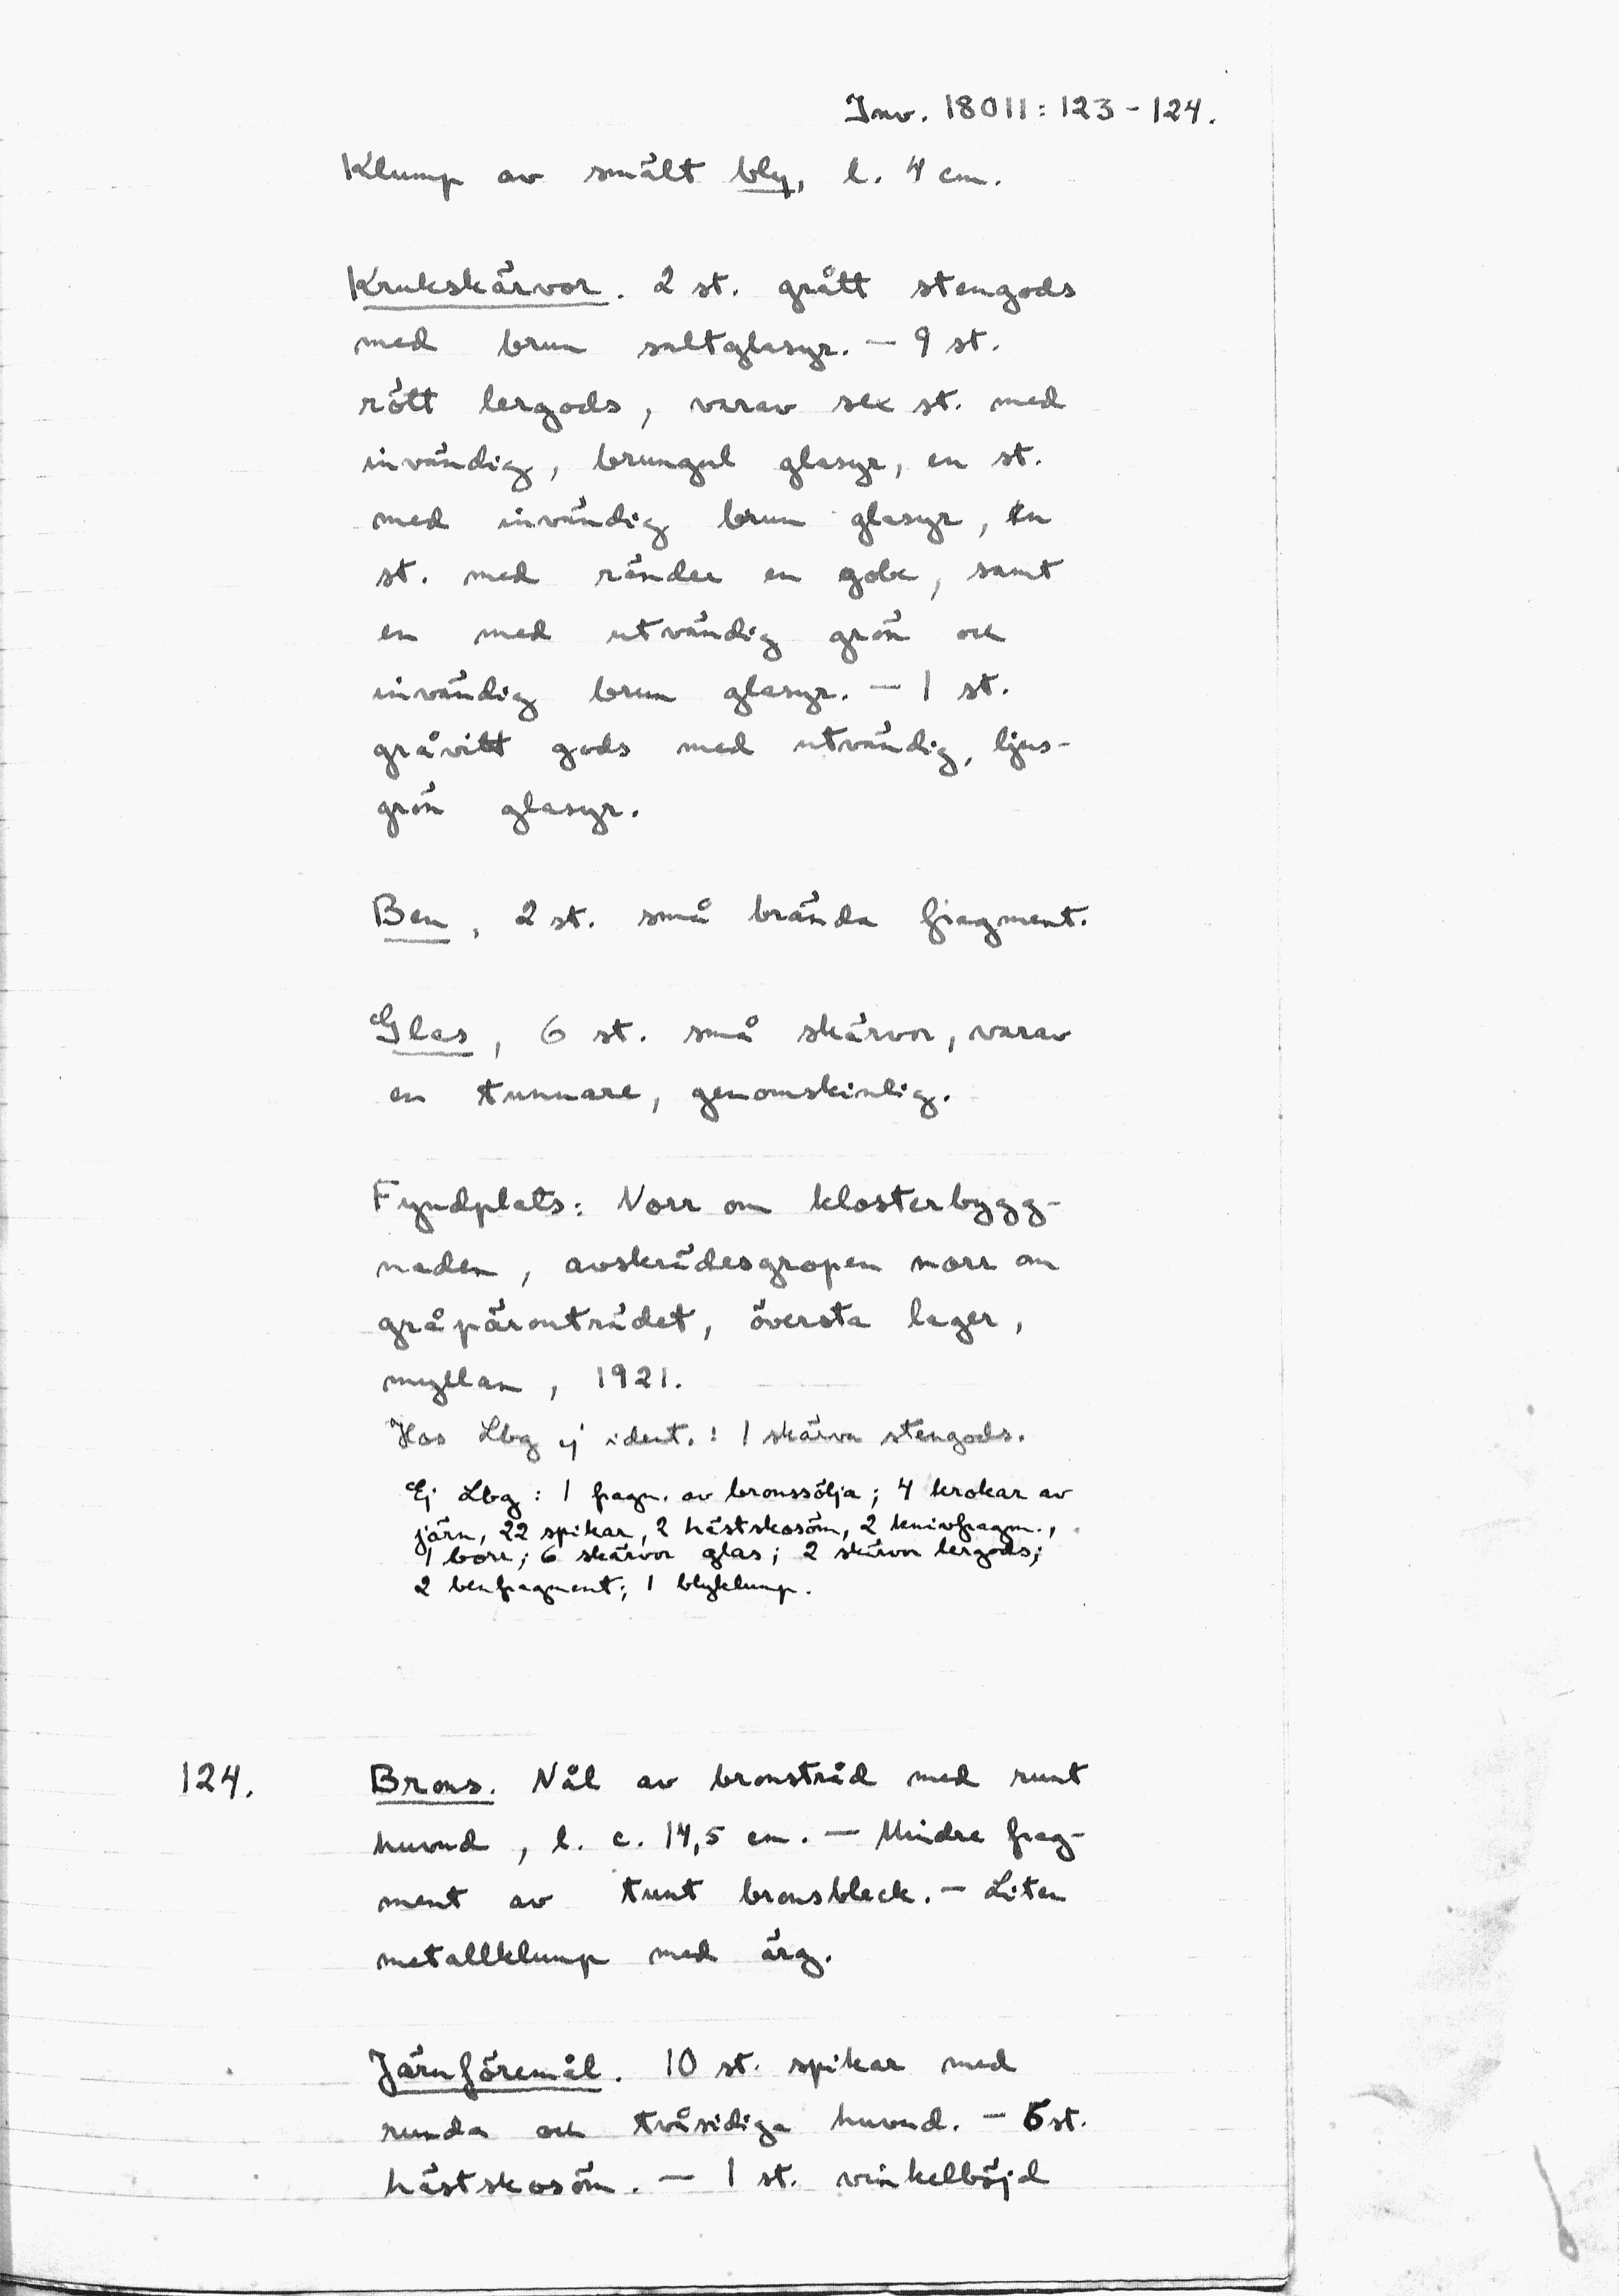 Inv. 18011:123-124.
Klump av smält bly, l. 4 cm.
Krukskärvor. 2 st. grått stengods
med brun saltglasyr. — 9 st.
rött lergods, varav sex st. med
invändig, brungul glasyr, en st.
med invändig brun glasyr, en
st. med ränder en gobe, samt
en med utvändig grön och
invändig brun glasyr. — 1 st.
gråvitt gods med utvändig, ljus-
grön glasyr.
Ben, 2 st. små brända fragment.
Glas, 6 st. små skärvor, varav
en tunnare, genomskinlig.
Fyndplats: Norr om klosterbygg-
naden, avskrädesgropen norr om
gråpäronträdet, översta lager,
myllan, 1921.
Hos Lbg ej ident.: 1 skärva stengods.
Ej Lbg: 1 fragm. av bronssölja; 4 krokar av
järn, 22 spikar, 2 hästskosöm, 2 knivfragm.,
1 borr; 6 skärvor glas; 2 skärvor lergods;
2 benfragment; 1 blyklump.
124. Brons. Nål av bronstråd med runt
huvud, l. c. 14,5 cm. — Mindre frag-
ment av tunt bronsbleck. — Liten
metallklump med ärg.
Järnföremål. 10 st. spikar med
runda och tvåsidiga huvud. — 5 st.
hästskosöm. — 1 st. vinkelböjd